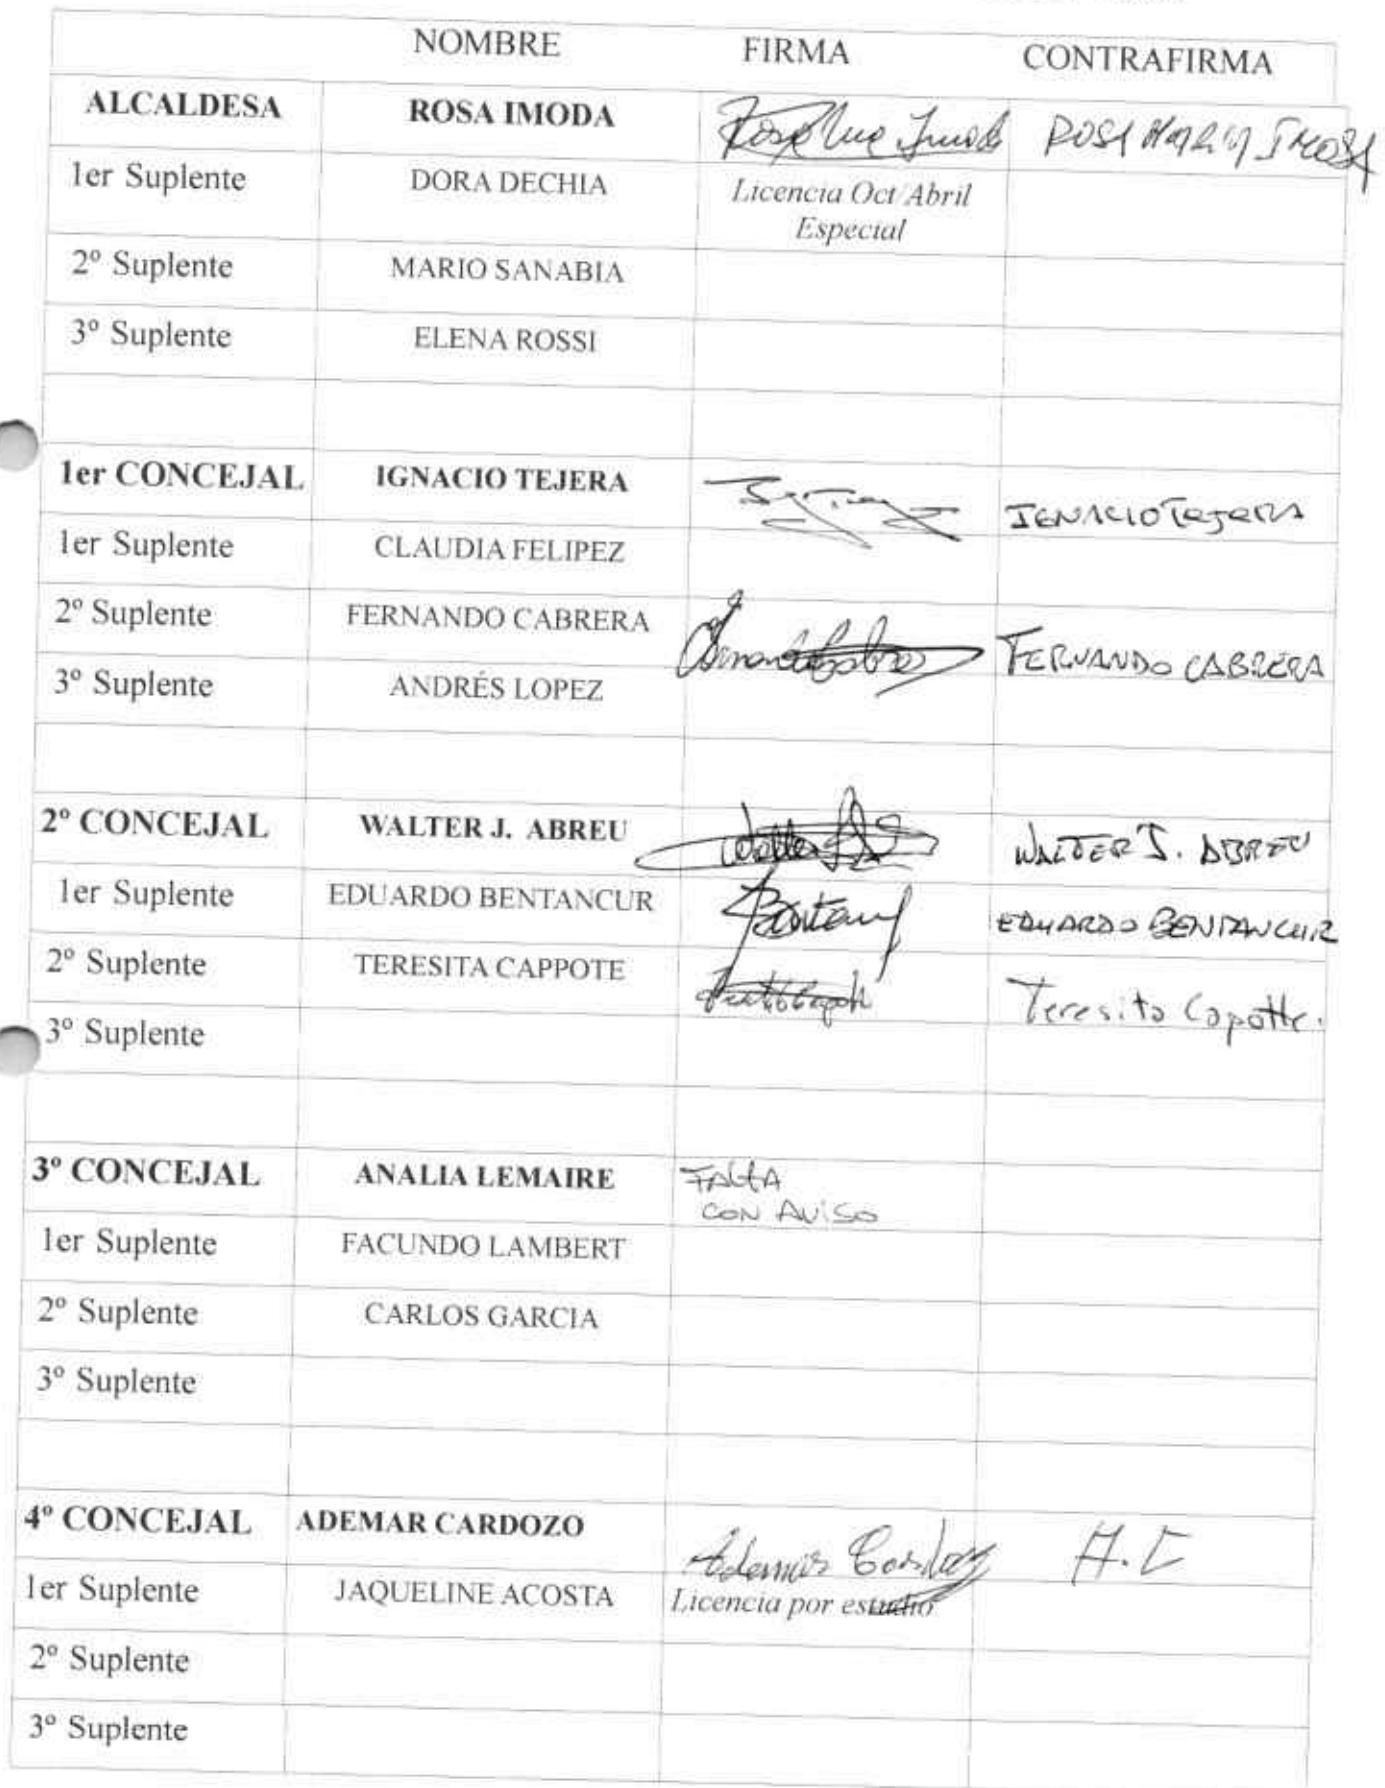 NOMBRE FIRMA CONTRAFIRMA
ALCALDESA ROSA IMODA ROSA MARIA IMODA
1er Suplente DORA DECHIA Licencia Oct/Abril
Especial
2º Suplente MARIO SANABIA
3º Suplente ELENA ROSSI
1er CONCEJAL IGNACIO TEJERA IGNACIO TEJERA
1er Suplente CLAUDIA FELIPEZ
2º Suplente FERNANDO CABRERA FERNANDO CABRERA
3º Suplente ANDRÉS LOPEZ
2º CONCEJAL WALTER J. ABREU WALTER J. ABREU
1er Suplente EDUARDO BENTANCUR EDUARDO BENTANCUR
2º Suplente TERESITA CAPPOTE Teresita Capotte.
3º Suplente
3º CONCEJAL ANALIA LEMAIRE FALTA
CON AVISO
1er Suplente FACUNDO LAMBERT
2º Suplente CARLOS GARCIA
3º Suplente
4º CONCEJAL ADEMAR CARDOZO Ademar Cardozo A.C
1er Suplente JAQUELINE ACOSTA Licencia por estudio
2º Suplente
3º Suplente